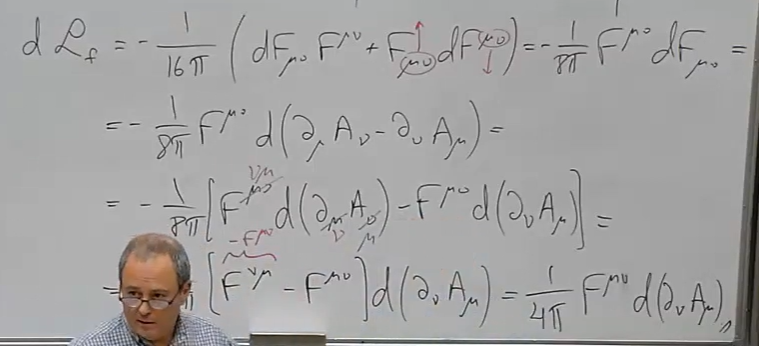 dℒ_f = -1/16π (dF_μν F^μν + F_μν dF^μν) = -1/8π F^μν dF_μν =
= -1/8π F^μν d(∂_μ A_ν - ∂_ν A_μ) =
νμ
= -1/8π [F^μν d(∂_μ A_ν) - F^μν d(∂_ν A_μ)] =
-F^μν ν μ
= [F^νμ - F^μν] d(∂_ν A_μ) = 1/4π F^μν d(∂_ν A_μ),